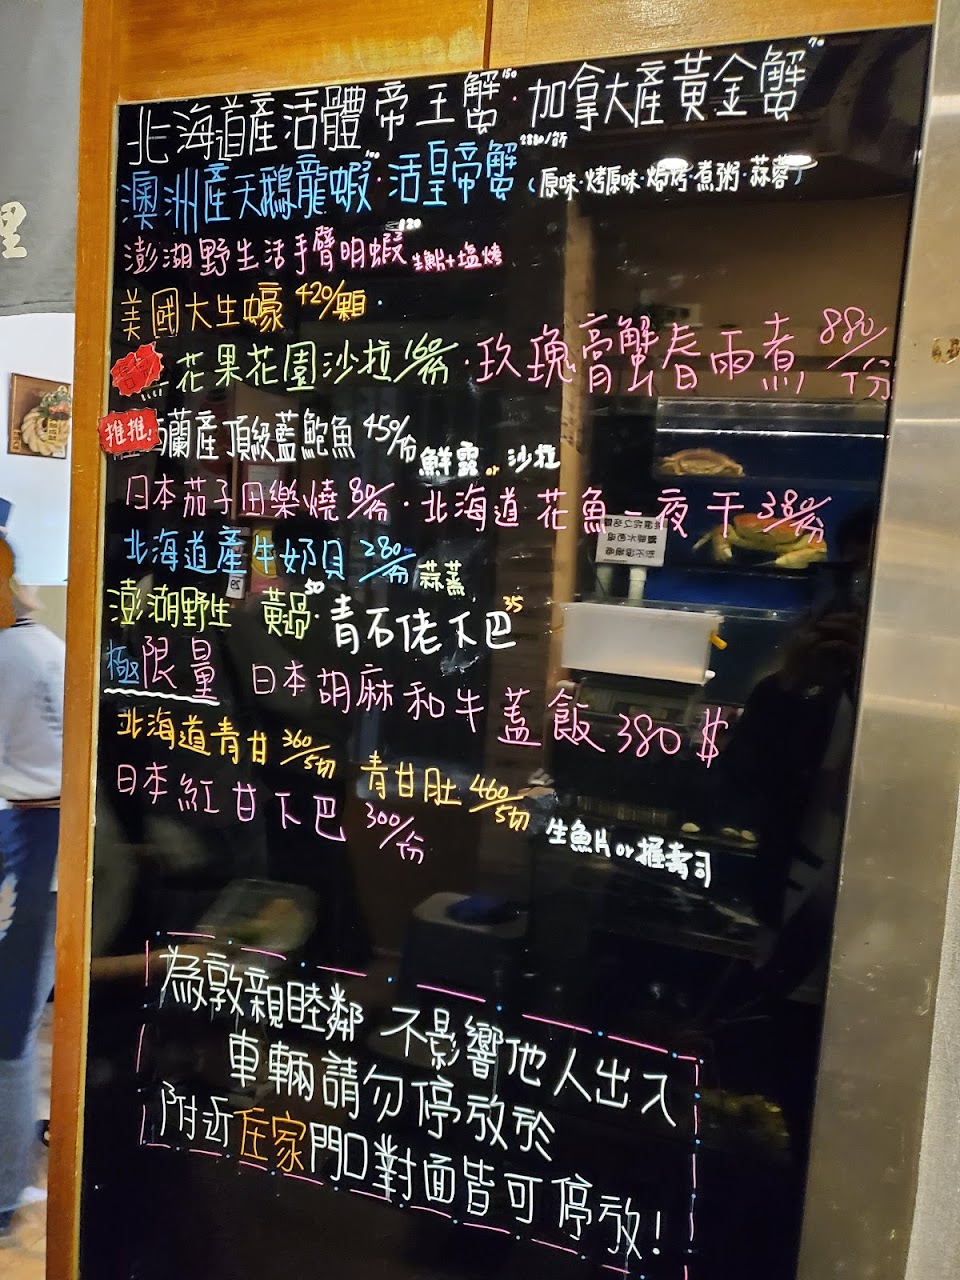 北海道產活體帝王蟹150·加拿大產黃金蟹70
澳洲產天鵝龍蝦100·活皇帝蟹2880/斤(原味·烤原味·焗烤·煮粥·蒜蓉)
澎湖野生活手臂明蝦120 生魚片+塩烤
美國大生蠔420/顆·
花果花園沙拉160/份·玫瑰膏蟹春雨煮880/1份
推推! 蘭產頂級藍鮑魚450/份 鮮露or沙拉
日本茄子田樂燒80/份·北海道花魚一夜干380/份
北海道產牛奶貝280/份 蒜蒸
澎湖野生 黃過50·青石佬下巴35
極限量 日本胡麻和牛蓋飯380$
北海道青甘360/5切 青甘肚460/5切
日本紅甘下巴300/份 生魚片or握壽司
為敦親睦鄰 不影響他人出入
車輛請勿停放於
附近住家門口對面皆可停放!